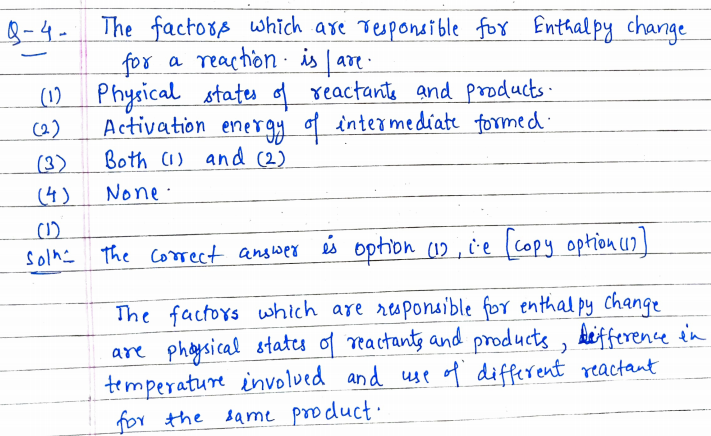 Q-4- The factors which are responsible for Enthalpy change
for a reaction. is/are.
(1) Physical states of reactants and products.
(2) Activation energy of intermediate formed.
(3) Both (1) and (2)
(4) None.
(1)
Soln:- The correct answer is option (1), i.e [copy option (1)]
The factors which are responsible for enthalpy change
are physical states of reactants and products, difference in
temperature involved and use of different reactant
for the same product.